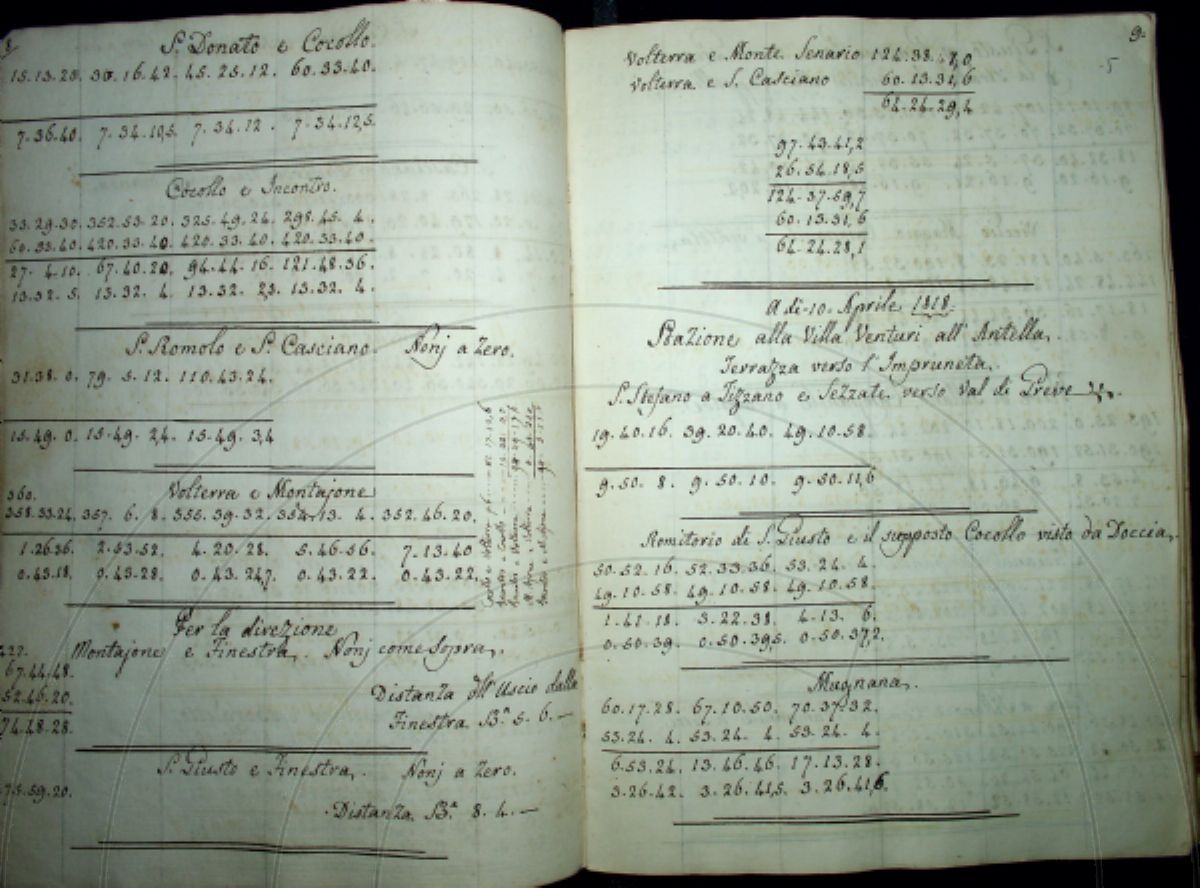 8
S. Donato e Cocollo.
15.13.20. 30.16.42. 45.25.12. 60.33.40.
7.36.40. 7.34.10,5. 7.34.12. 7.34.12,5.
Cocollo e Incontro.
33.29.30. 352.53.20. 325.49.24. 298.45. 4.
60.33.40. 420.33.40. 420.33.40. 420.33.40.
27. 4.10. 67.40.20. 94.44.16. 121.48.36.
13.32. 5. 13.32. 4. 13.32. 2,3. 13.32. 4.
S. Romolo e S. Casciano. Nonj a Zero.
31.38. 0. 79. 5.12. 110.43.24.
15.49. 0. 15.49. 2,4. 15.49. 3,4
Volterra e Montajone
360.
358.33.24. 357. 6. 8. 355.39.32. 354.13. 4. 352.46.20.
1.26.36. 2.53.52. 4.20.28. 5.46.56. 7.13.40
0.43.18. 0.43.28. 0.43.24,7. 0.43.22. 0.43.22.
Per la direzione
Montajone e Finestra. Nonj come sopra.
427.
67.44.48.
52.46.20.
74.48.28.
Distanza dell'Uscio dalla
Finestra B.ª 5. 6. —
S. Giusto e Finestra. Nonj a Zero.
75.59.20.
Distanza B.ª 8. 4. —
9.
5
Volterra e Monte Senario 124.38. 1,0
Volterra e S. Casciano 60.13.31,6
64.24.29,4
97.43.41,2
26.54.18,5
124.37.59,7
60.13.31,6
64.24.28,1
A di 10. Aprile 1818.
Stazione alla Villa Venturi all'Antella.
Terrazza verso l'Impruneta.
S. Stefano a Tizzano e Sezzate verso Val di Greve
19.40.16. 39.20.40. 49.10.58.
9.50. 8. 9.50.10. 9.50.11,6
Romitorio di S. Giusto e il supposto Cocollo visto da Doccia.
50.52.16. 52.33.36. 53.24. 4.
49.10.58. 49.10.58. 49.10.58.
1.41.18. 3.22.38. 4.13. 6.
0.50.39. 0.50.39,5. 0.50.37,2.
Mugnana.
60.17.28. 67.10.50. 70.37.32.
53.24. 4. 53.24. 4. 53.24. 4.
6.53.24. 13.46.46. 17.13.28.
3.26.42. 3.26.41,5. 3.26.41,6.